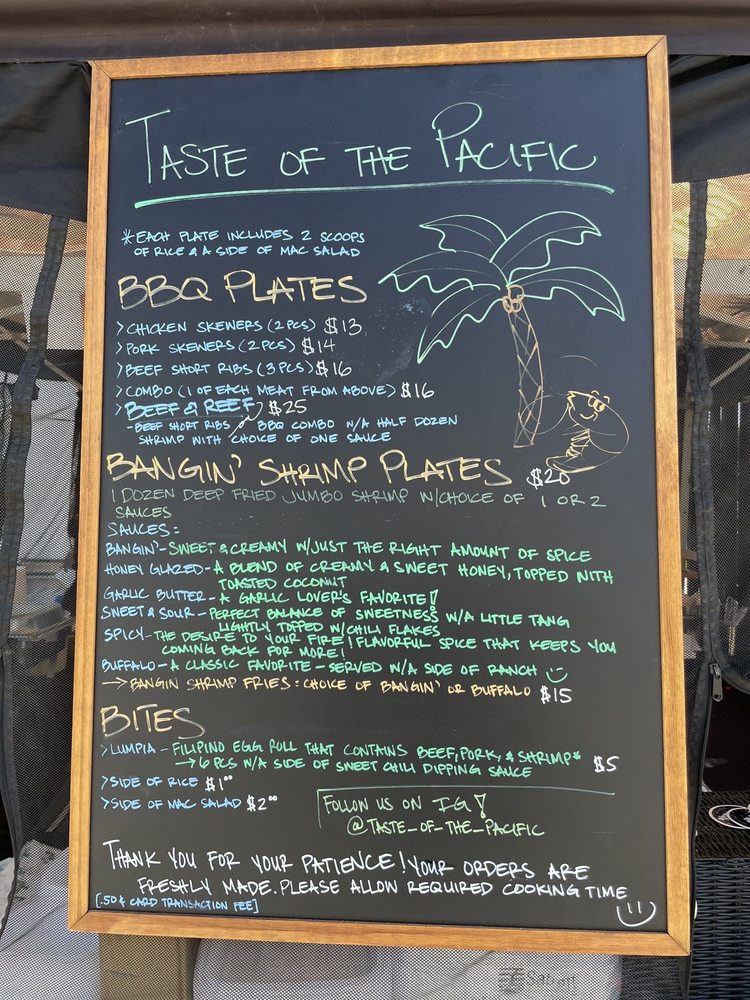 TASTE OF THE PACIFIC
*EACH PLATE INCLUDES 2 SCOOPS
OF RICE & A SIDE OF MAC SALAD
BBQ PLATES
>CHICKEN SKEWERS (2PCS) $13
>PORK SKEWERS (2PCS) $14
>BEEF SHORT RIBS (3PCS) $16
>COMBO (1 OF EACH MEAT FROM ABOVE) $16
>BEEF & REEF $25
-BEEF SHORT RIBS / BBQ COMBO W/A HALF DOZEN
SHRIMP WITH CHOICE OF ONE SAUCE
BANGIN' SHRIMP PLATES $20
1 DOZEN DEEP FRIED JUMBO SHRIMP W/CHOICE OF 1 OR 2
SAUCES
SAUCES:
BANGIN'-SWEET & CREAMY W/JUST THE RIGHT AMOUNT OF SPICE
HONEY GLAZED-A BLEND OF CREAMY & SWEET HONEY, TOPPED WITH
TOASTED COCONUT
GARLIC BUTTER-A GARLIC LOVER'S FAVORITE!
SWEET & SOUR-PERFECT BALANCE OF SWEETNESS W/A LITTLE TANG
LIGHTLY TOPPED W/CHILI FLAKES
SPICY-THE DESIRE TO YOUR FIRE! FLAVORFUL SPICE THAT KEEPS YOU
COMING BACK FOR MORE!
BUFFALO-A CLASSIC FAVORITE-SERVED W/A SIDE OF RANCH
→BANGIN SHRIMP FRIES: CHOICE OF BANGIN' OR BUFFALO $15
BITES
>LUMPIA-FILIPINO EGG ROLL THAT CONTAINS BEEF, PORK, & SHRIMP*
→6 PCS W/A SIDE OF SWEET CHILI DIPPING SAUCE $5
>SIDE OF RICE $1.00
>SIDE OF MAC SALAD $2.00
FOLLOW US ON IG!
@TASTE_OF_THE_PACIFIC
THANK YOU FOR YOUR PATIENCE! YOUR ORDERS ARE
FRESHLY MADE. PLEASE ALLOW REQUIRED COOKING TIME
[.50¢ CARD TRANSACTION FEE]